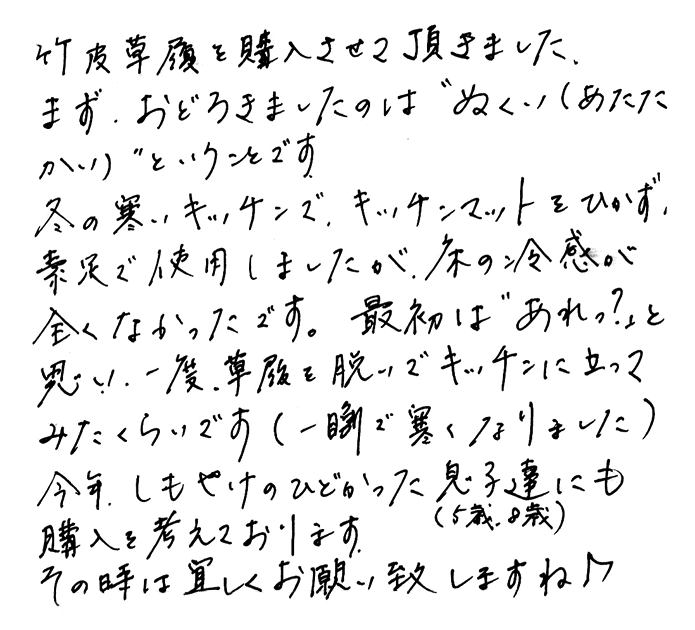 竹皮草履を購入させて頂きました、
まず、おどろきましたのは〝ぬくい(あたた
かい)〟ということです。
冬の寒いキッチンで、キッチンマットをひかず、
素足で使用しましたが、床の冷感が
全くなかったです。最初は〝あれっ?〟と
思い、一度、草履を脱いでキッチンに立って
みたくらいです(一瞬で寒くなりました)
今年、しもやけのひどかった息子達にも
(5歳、8歳)
購入を考えております。
その時は宜しくお願い致しますね♪